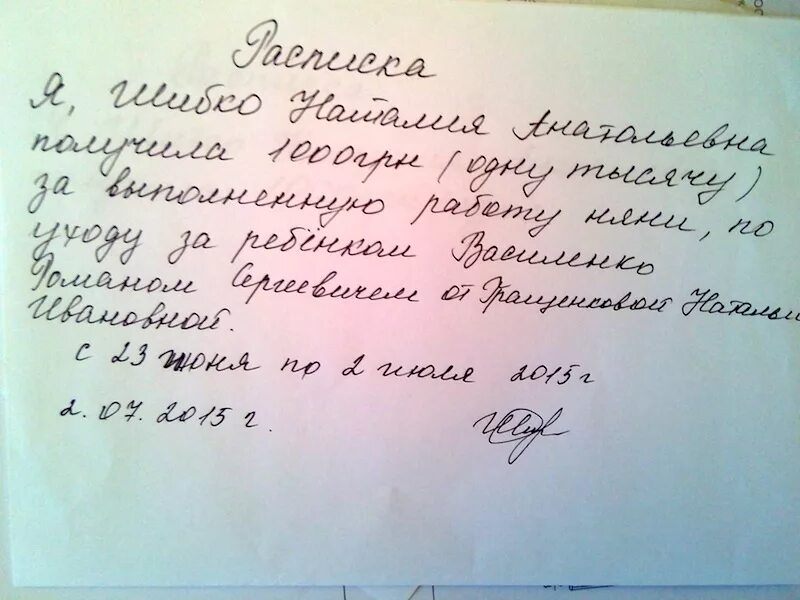 Расписка
Я, Шибко Наталия Анатольевна
получила 1000грн (одну тысячу)
за выполненную работу няни, по
уходу за ребёнком Василенко
Романом Сергеевичем от Гращенковой Натальи
Ивановной.
с 23 июня по 2 июля 2015г
2.07.2015 г.